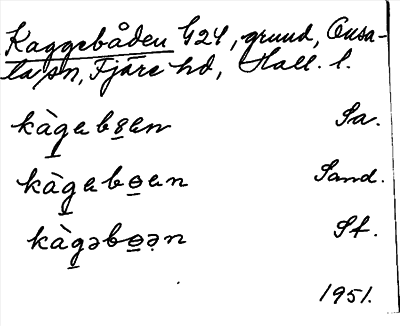 Kaggebåden G24, grund, Onsa-
la sn, Fjäre hd, Hall. l.
kàgabɵan Sa.
kàgabɵan Sand.
kàgəbɵən St.
1951.